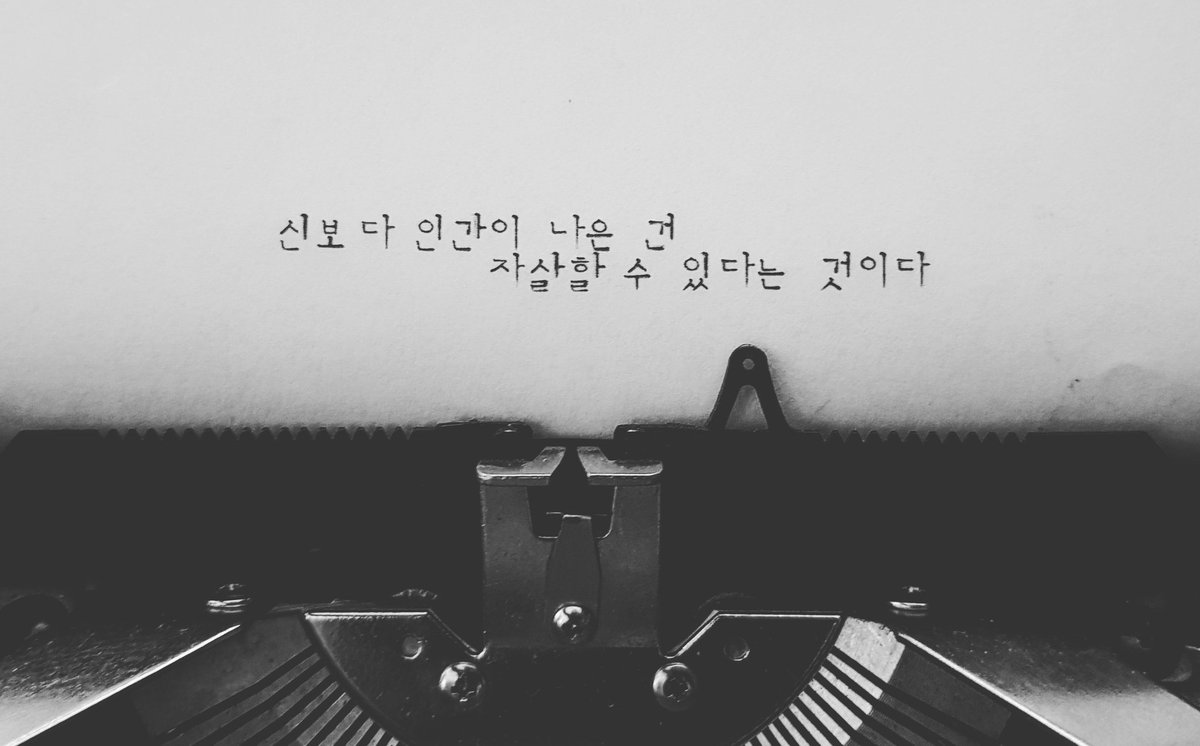 신보다 인간이 나은 건
자살할 수 있다는 것이다